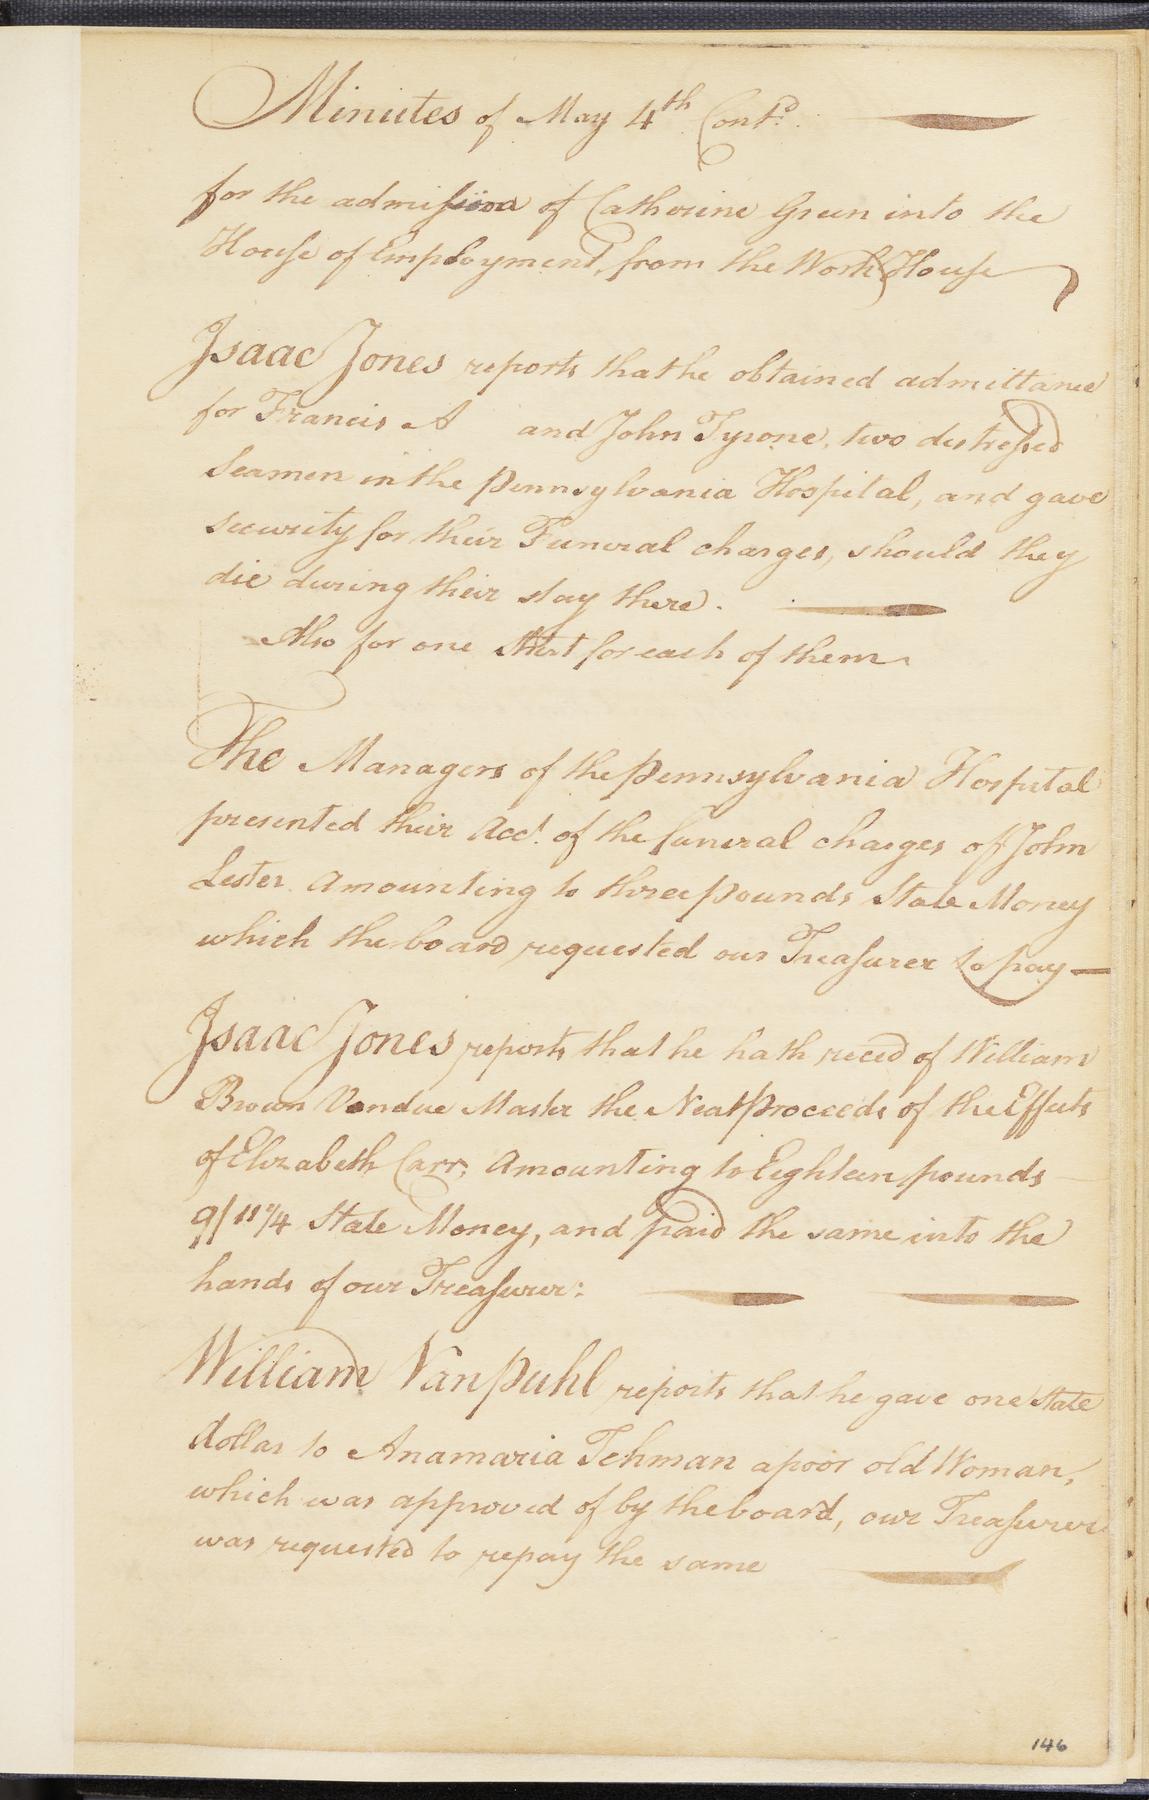 Minutes of May 4th Contd.
for the admission of Catherine Green into the
House of Employment, from the Work House
Isaac Jones reports that he obtained admittance
for Francis A and John Tyrone, two distressed
Seamen in the Pennsylvania Hospital, and gave
security for their Funeral charges, should they
die during their stay there.
Also for one Shirt for each of them
The Managers of the Pennsylvania Hospital
presented their Acct. of the funeral charges of John
Lester Amounting to three pounds State Money
which the board requested our Treasurer to pay —
Isaac Jones reports that he hath recd of William
Brown Vendue Master the Neat Proceeds of the Effects
of Elizabeth Carr, Amounting to Eighteen pounds
9/11 1/4 State Money, and paid the same into the
hands of our Treasurer:
William VanPuhl reports that he gave one State
dollar to Anamaria Tehman a poor old Woman,
which was approved of by the board, our Treasurer
was requested to repay the same
146